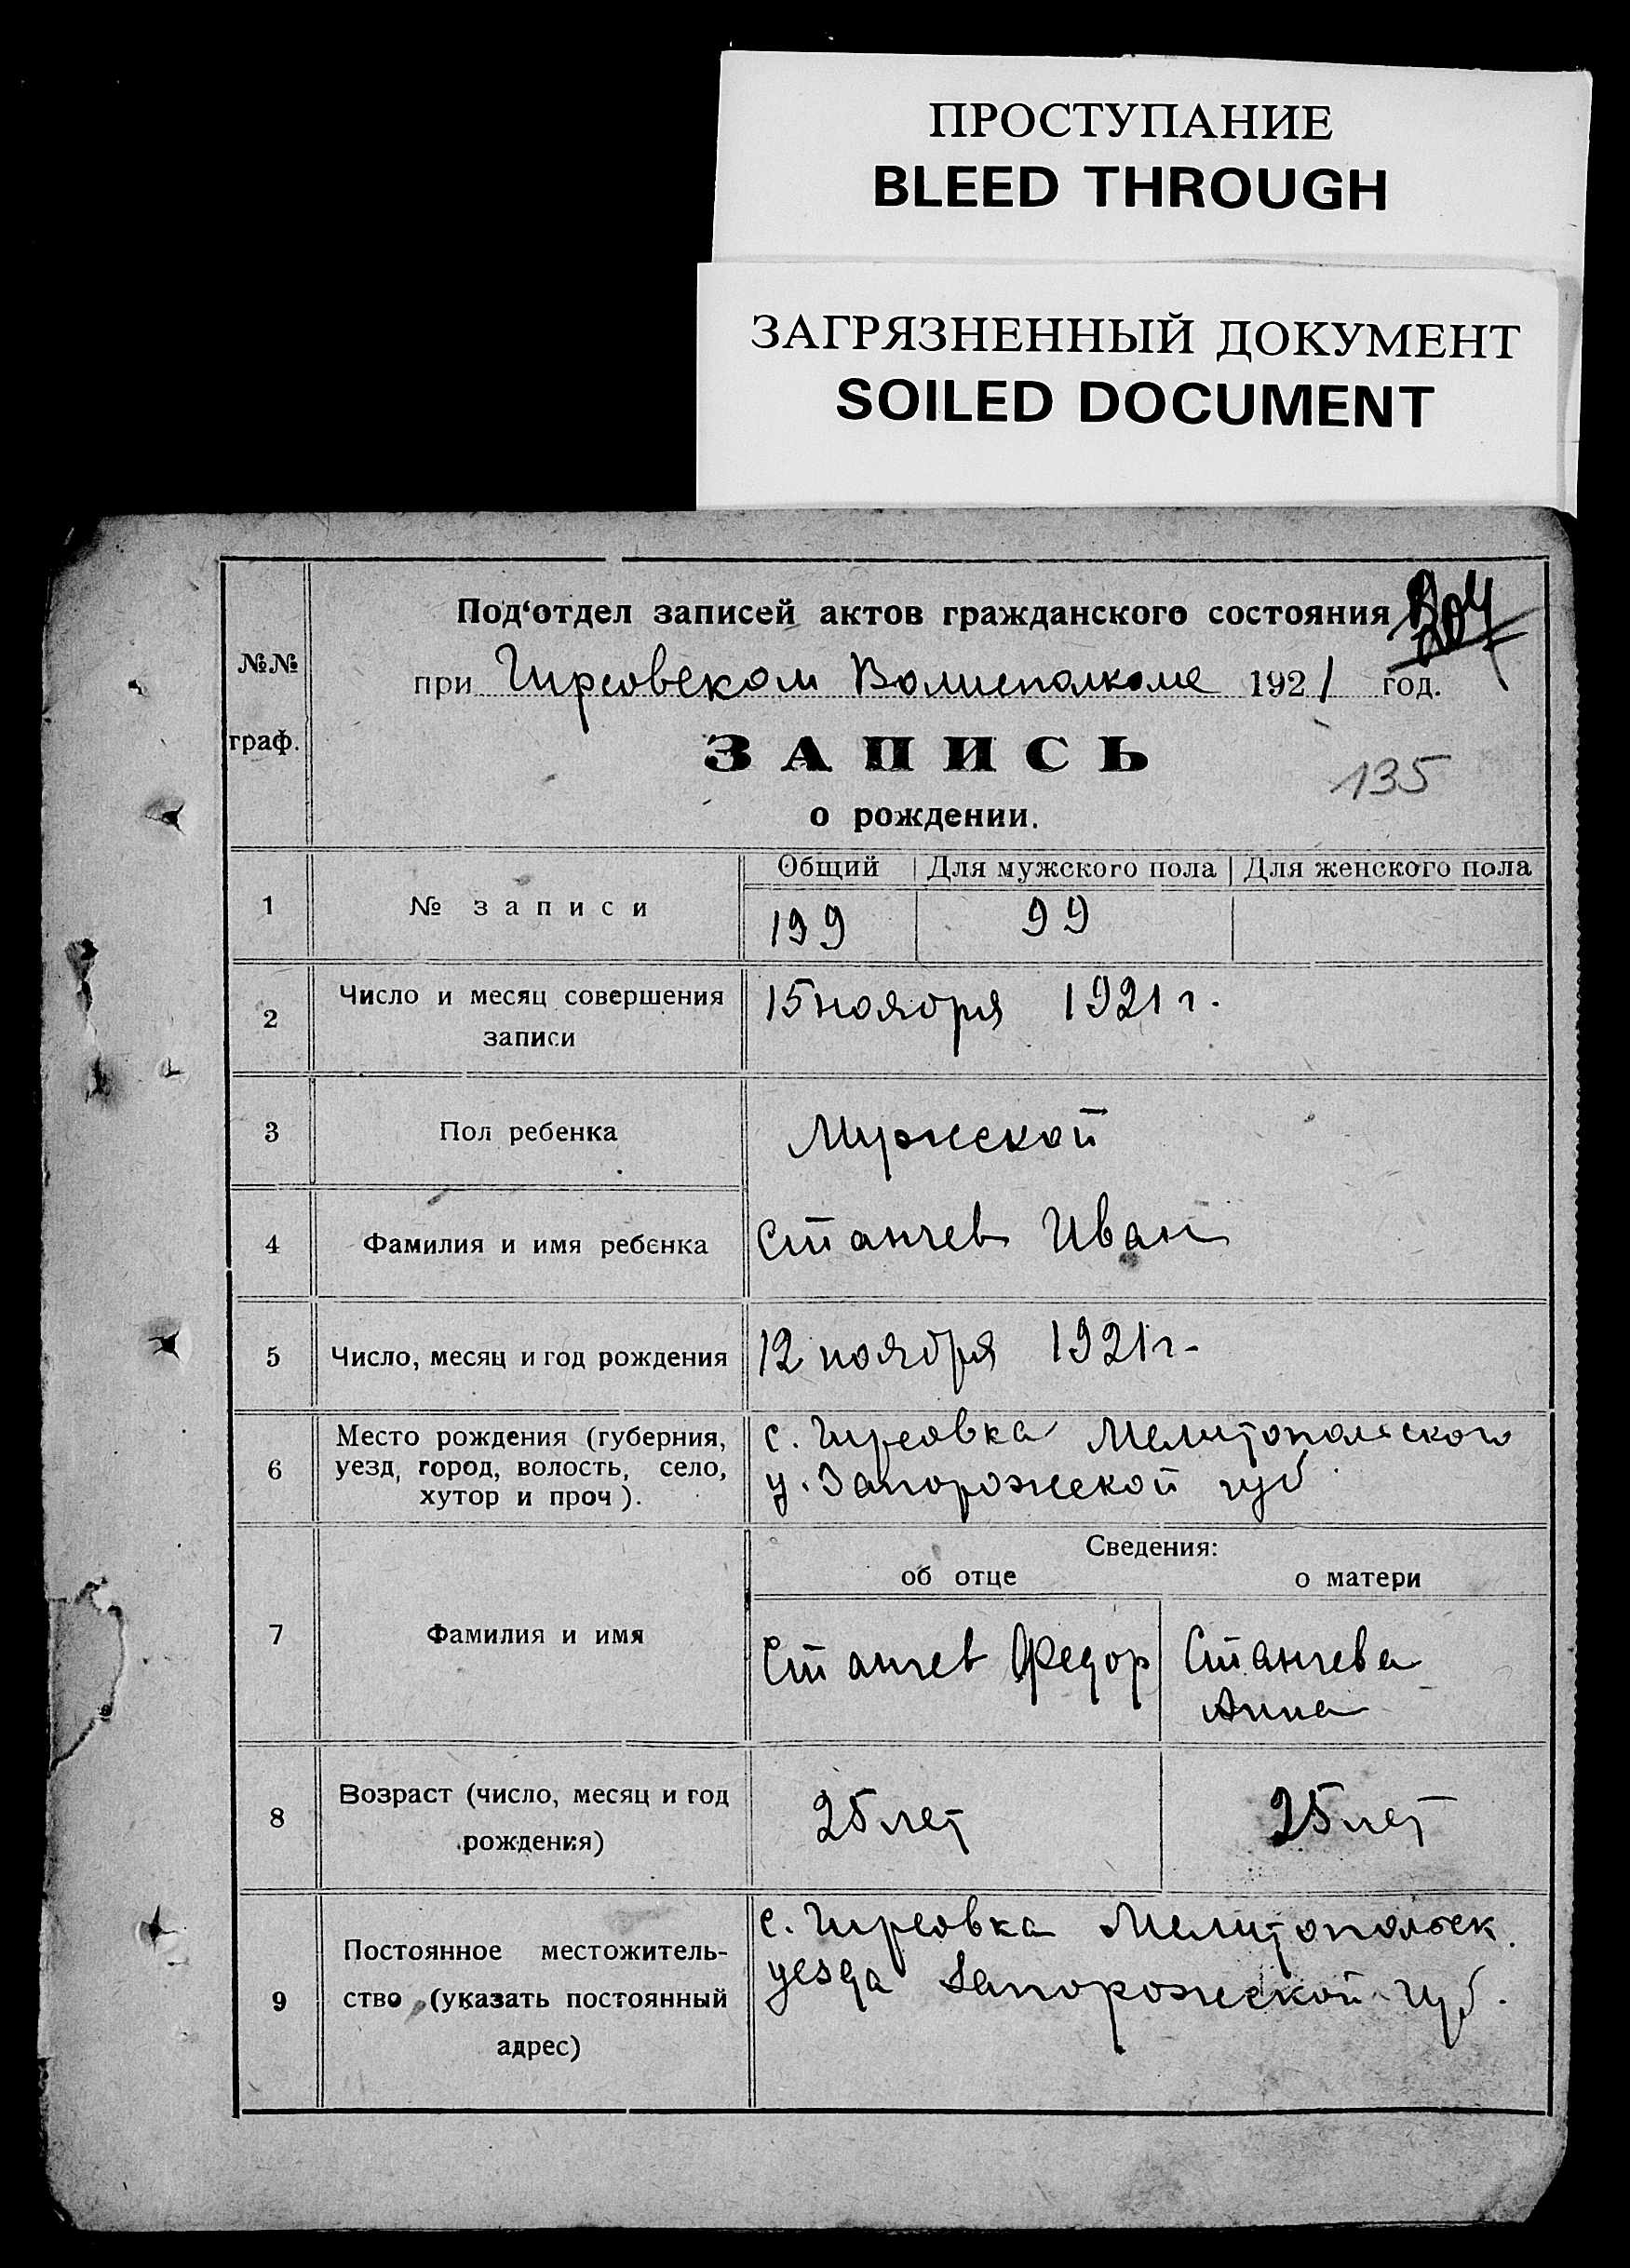 ПРОСТУПАНИЕ
BLEED THROUGH
ЗАГРЯЗНЕННЫЙ ДОКУМЕНТ
SOILED DOCUMENT
Под‘отдел записей актов гражданского состояния
№№
при Гирсовском Волисполкоме 1921 год.
граф.
ЗАПИСЬ
135
о рождении.
Общий Для мужского пола Для женского пола
1 № записи 199 99
2 Число и месяц совершения 15 ноября 1921 г.
записи
3 Пол ребенка Мужской
4 Фамилия и имя ребенка Станчев Иван
5 Число, месяц и год рождения 12 ноября 1921 г.
Место рождения (губерния, с. Гирсовка Мелитопольского
6 уезд, город, волость, село, у. Запорожской губ
хутор и проч).
Сведения:
об отце о матери
7 Фамилия и имя Станчев Федор Станчева
Анна
8 Возраст (число, месяц и год 25 лет 25 лет
рождения)
с. Гирсовка Мелитопольск.
Постоянное местожитель- уезда Запорожской губ.
9 ство (указать постоянный
адрес)